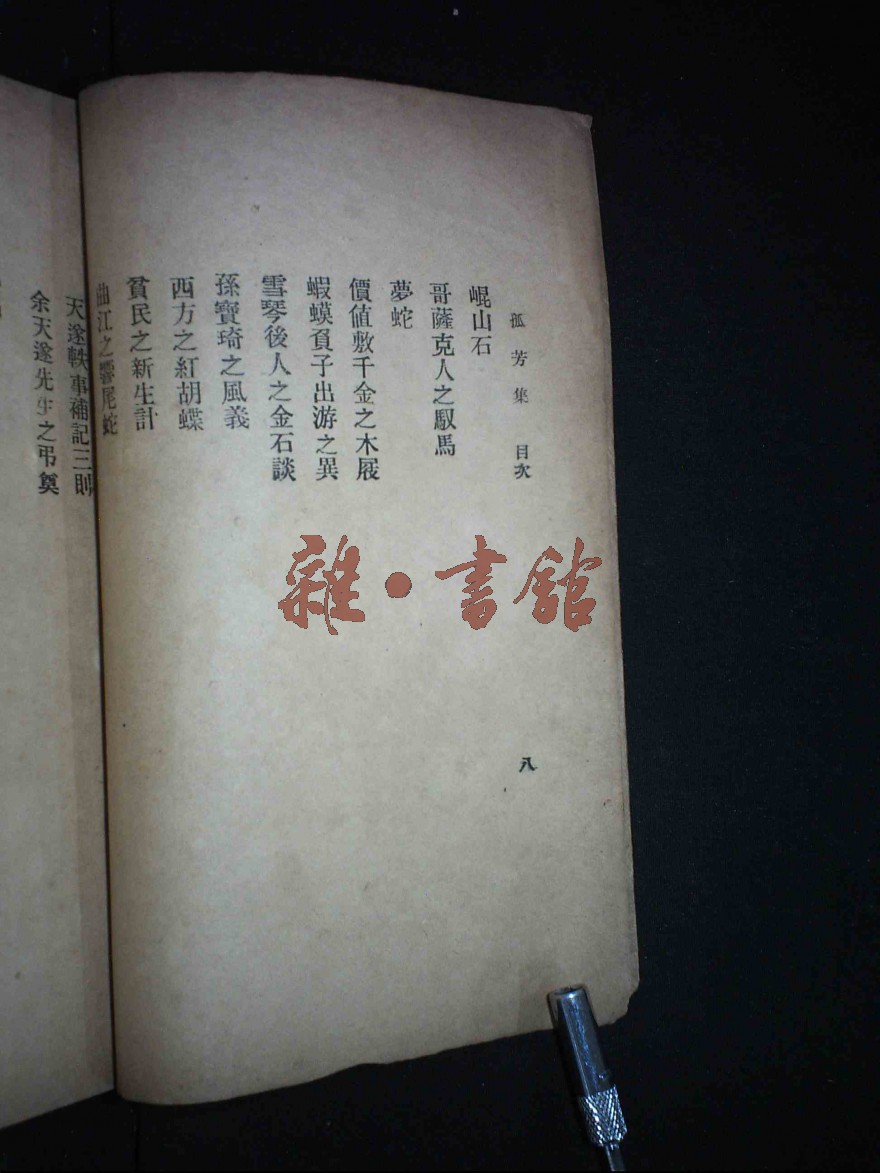 孤芳集 目次
八
崐山石
哥薩克人之馭馬
夢蛇
價値敷千金之木屐
蝦蟆負子出游之異
雪琴後人之金石談
孫寶琦之風義
西方之紅胡蝶
貧民之新生計
曲江之響尾蛇
天遂軼事補記三則
余天遂先生之弔奠
雜·書館